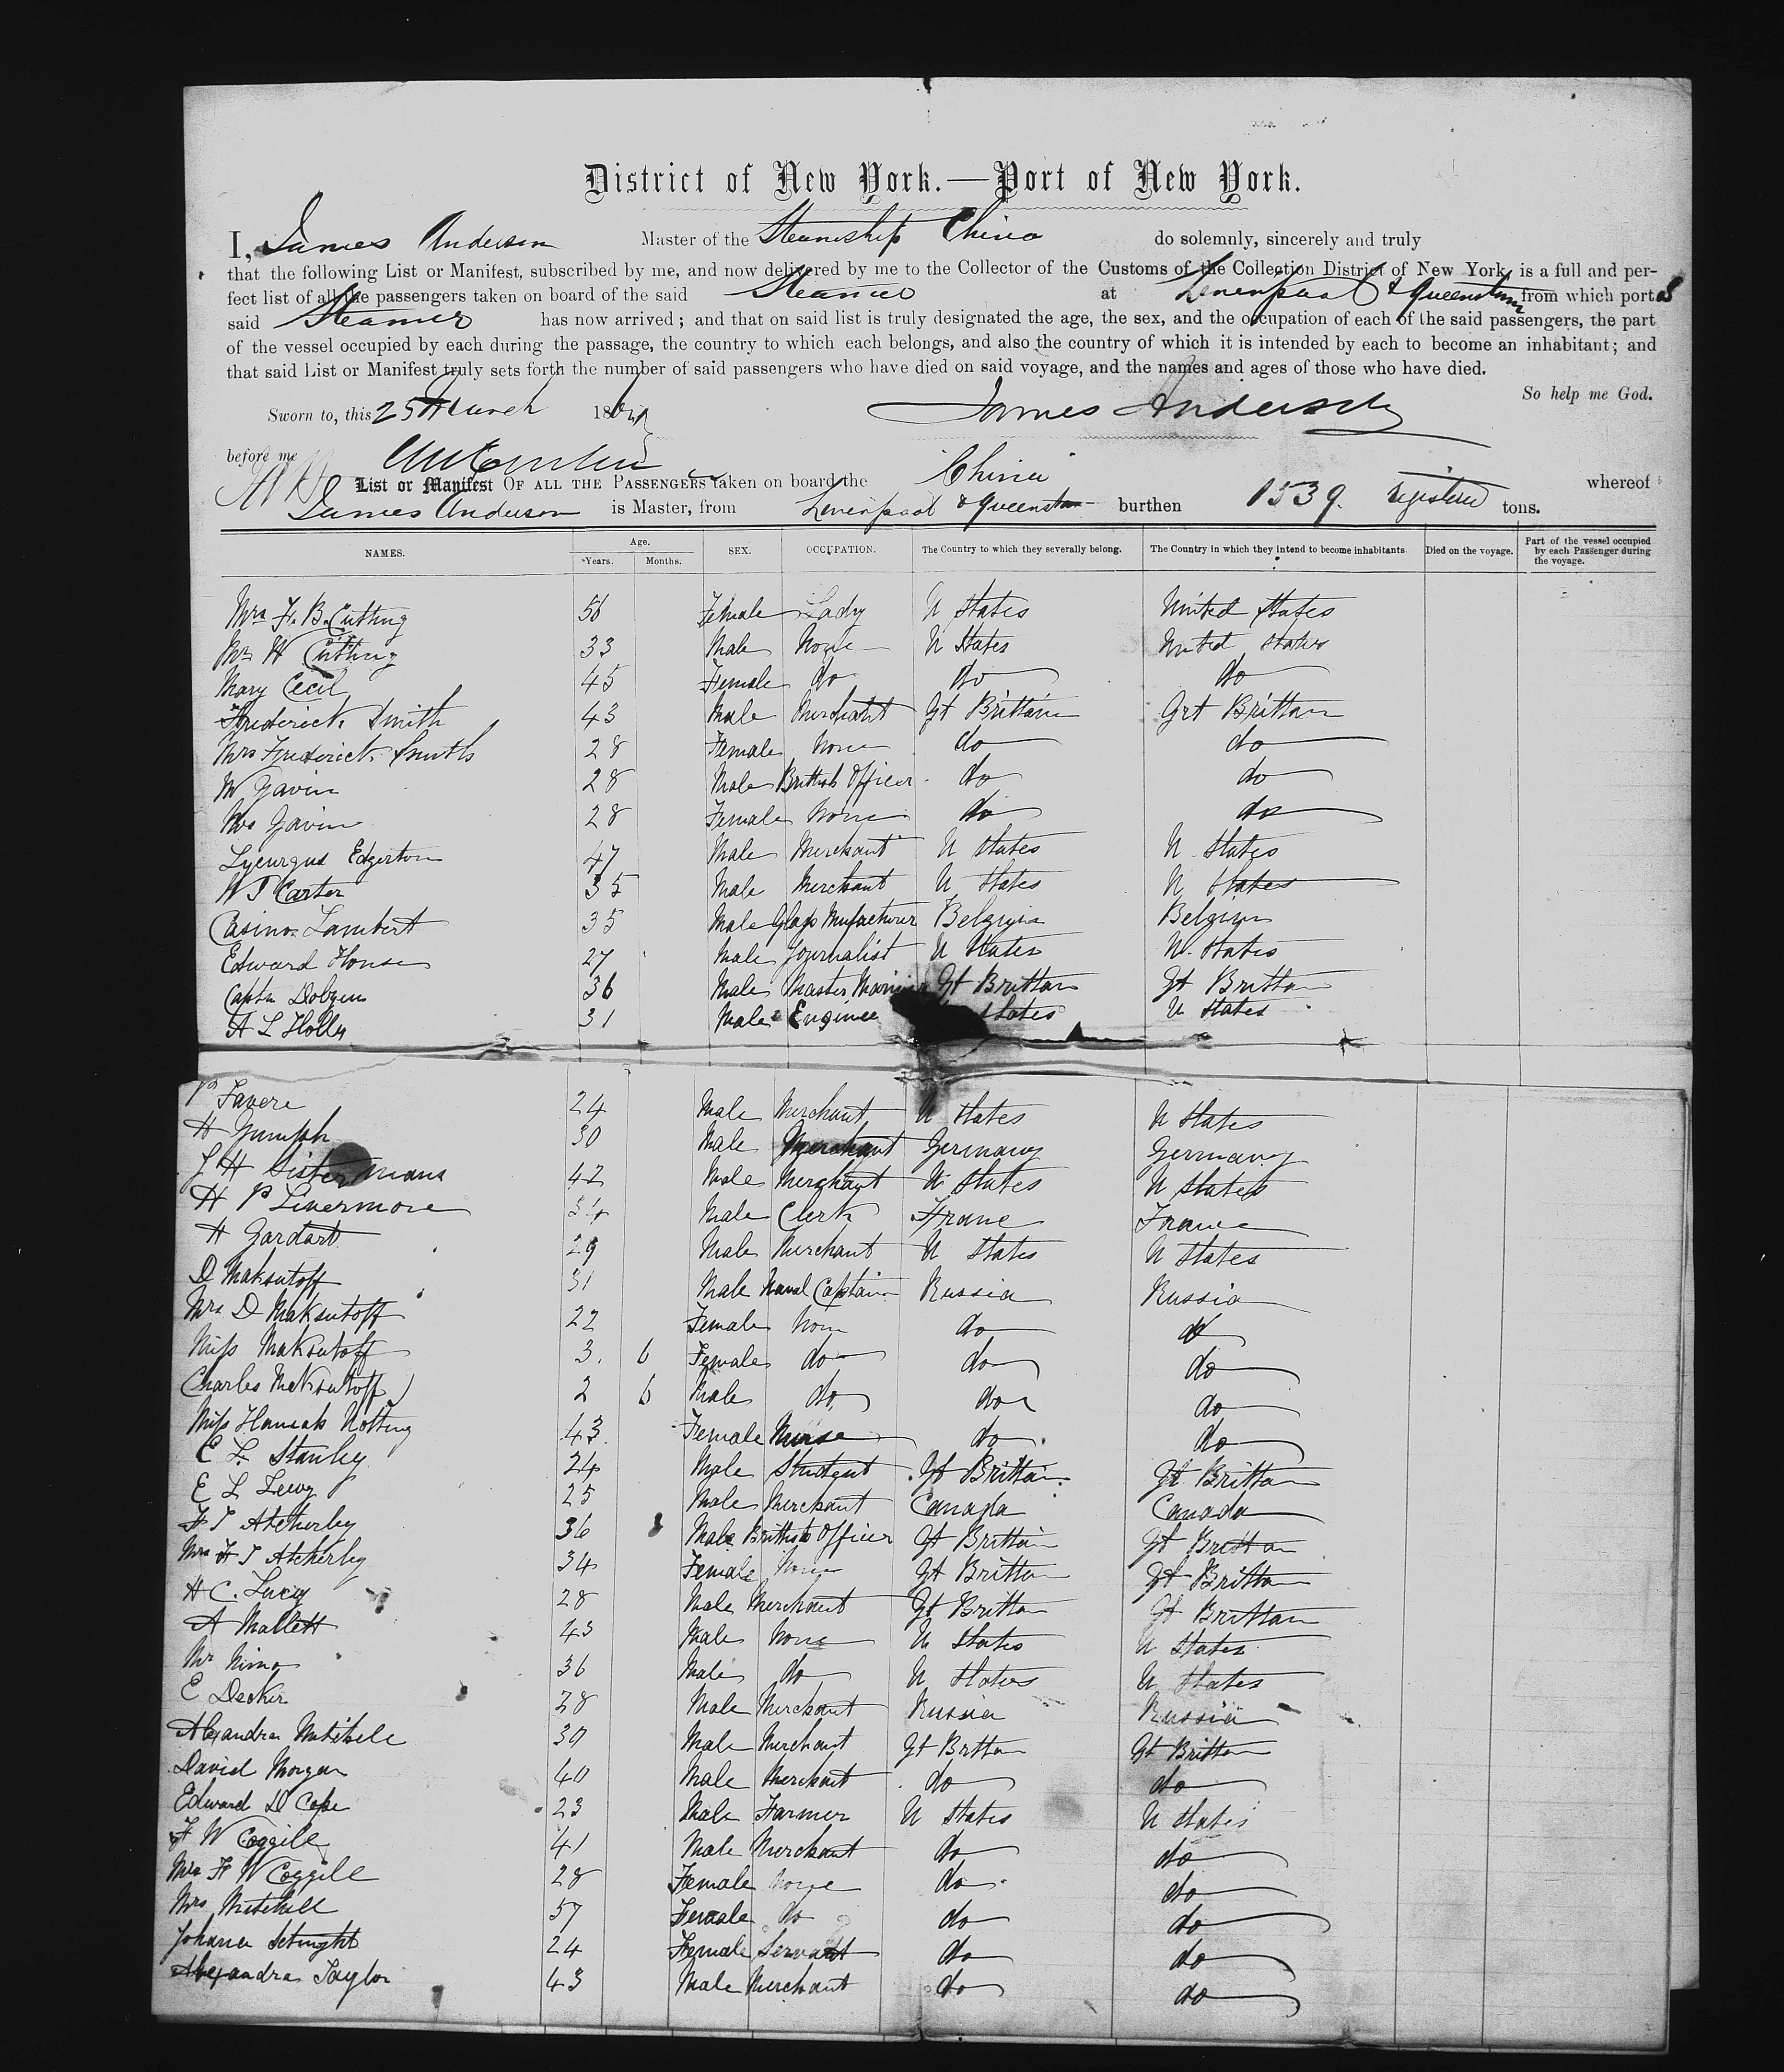 District of New York.—Port of New York.
I, James Anderson Master of the Steamship China do solemnly, sincerely and truly
that the following List or Manifest, subscribed by me, and now delivered by me to the Collector of the Customs of the Collection District of New York, is a full and per-
fect list of all the passengers taken on board of the said Steamer at Liverpool & Queenstown from which port s
said Steamer has now arrived; and that on said list is truly designated the age, the sex, and the occupation of each of the said passengers, the part
of the vessel occupied by each during the passage, the country to which each belongs, and also the country of which it is intended by each to become an inhabitant; and
that said List or Manifest truly sets forth the number of said passengers who have died on said voyage, and the names and ages of those who have died.
So help me God.
Sworn to, this 25th March 186 James Anderson
before me
List or Manifest OF ALL THE PASSENGERS taken on board the China whereof
James Anderson is Master, from Liverpool & Queenstown burthen 1539. registered tons.
NAMES. Age. Years. Months. SEX. OCCUPATION. The Country to which they severally belong. The Country in which they intend to become inhabitants. Died on the voyage. Part of the vessel occupied by each Passenger during the voyage.
Mrs F. B. Cutting 56 Female Lady U States United States
Mr W Cutting 33 Male None U States United States
Mary Cecil 45 Female do do do
Frederick Smith 43 Male Merchant Gt Brittain Grt Brittain
Mrs Frederick Smith 28 Female None do do
W Gavin 28 Male Brittish Officer do do
Mrs Gavin 28 Female None do do
Lycurgus Edgerton 47 Male Merchant U States U. States
W T Carter 35 Male Merchant U States U States
Casimo Lambert 35 Male Glass Mufacturer Belgium Belgium
Edward House 27 Male Journalist U States U. States
Captn Dobgen 36 Male Master Mariner Gt Brittan Gt Brittan
A L Holly 31 Male Enginee States U States
P Favere 24 Male Merchant U States U States
H Gumph 30 Male Merchant Germany Germany
J H Sistermans 42 Male Merchant U States U States
H P Livermore 34 Male Clerk France France
H Gardart 29 Male Merchant U States U States
D Maksutoff 31 Male Naval Captain Russia Russia
Mrs D Maksutoff 22 Female None do do
Miss Maksutoff 3. 6 Female do do do
Charles Maksutoff 2 6 Male do do do
Miss Hannah Notting 43 Female Nurse do do
E L. Stanley 24 Male Student Gt Brittain Gt Brittan
E L Levy 25 Male Merchant Canada Canada
F T Atcherley 36 Male Brittish Officer Gt Brittain Gt Brittan
Mrs F T Atcherley 34 Female None Gt Brittan Gt Brittan
H C. Lucy 28 Male Merchant Gt Brittan Gt Brittan
A Mallett 43 Male None U States U States
Mr Nimo 36 Male do U States U States
E Decker 28 Male Merchant Russia Russia
Alexandra Mitchell 39 Male Merchant Gt Brttan Gt Brittan
David Morgan 40 Male Merchant do do
Edward D Cope 23 Male Farmer U States U States
F W Coggill 41 Male Merchant do do
Mrs F W Coggill 28 Female None do do
Mrs Mitchell 57 Female do do do
Johana 24 Female Servant do do
Alexandra Taylor 43 Male Merchant do do